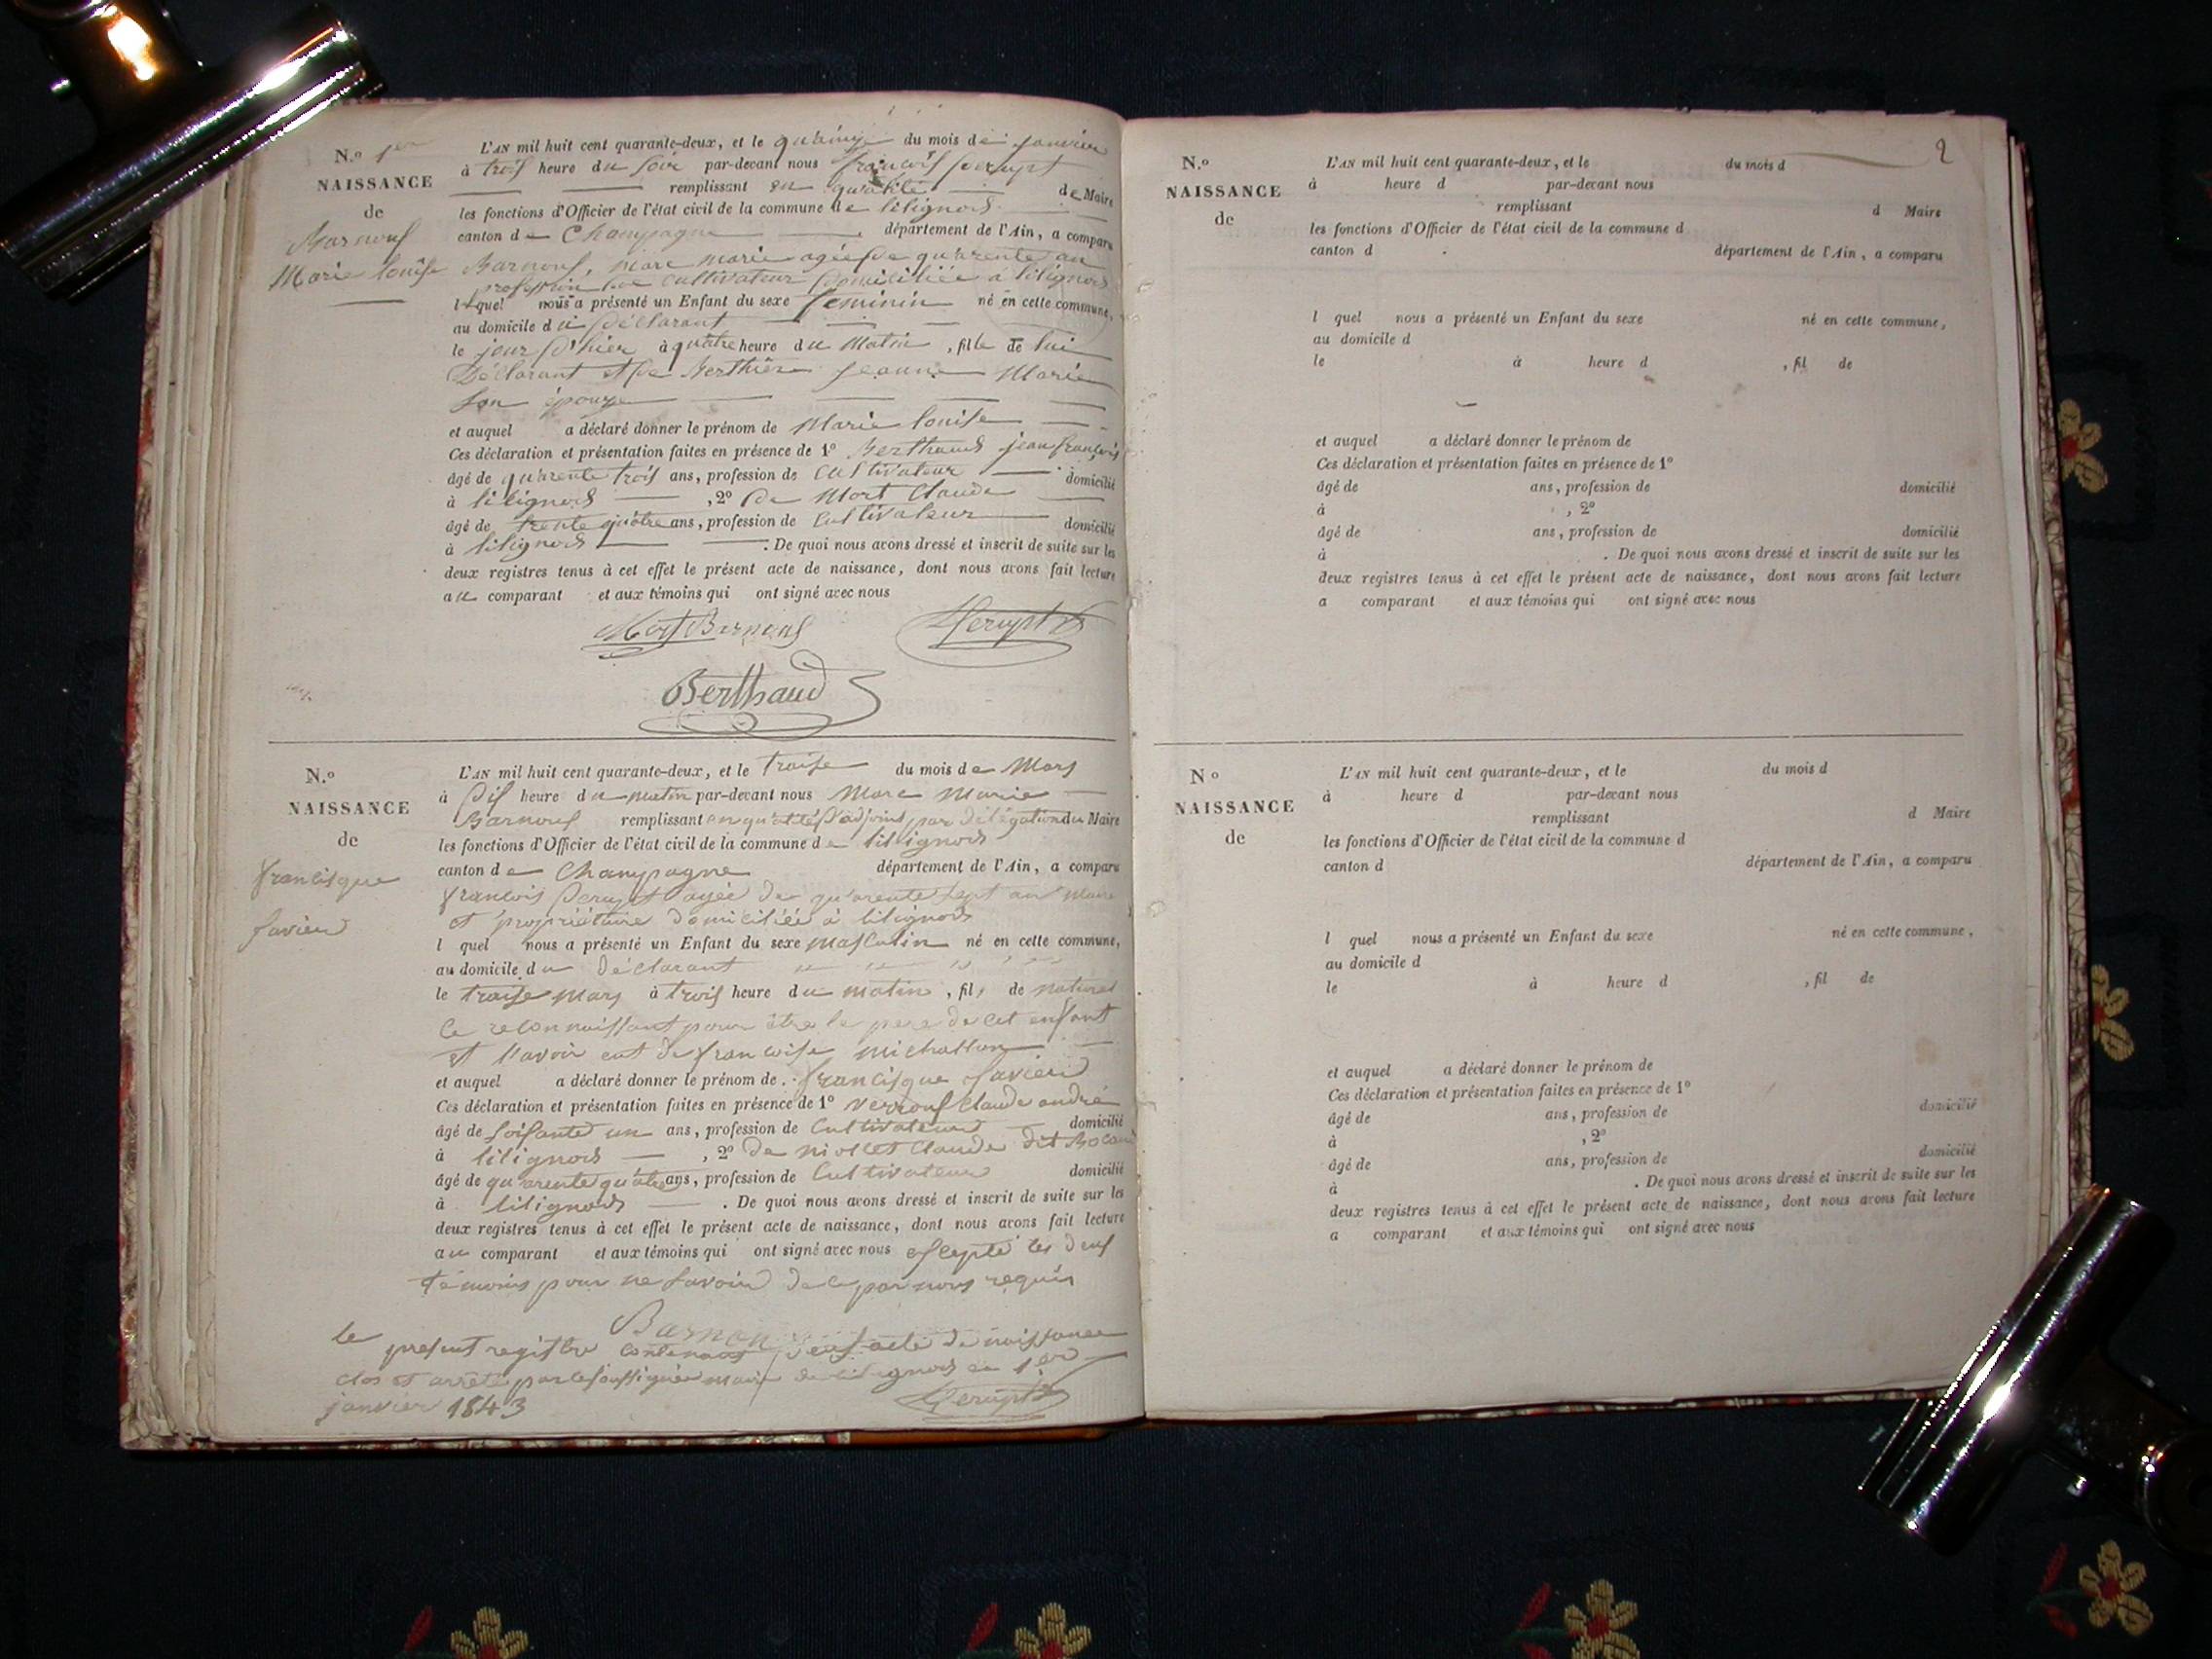 N.o 1er
NAISSANCE
de
Barnoud
Marie louise
L'AN mil huit cent quarante-deux, et le quinze du mois de janvier
à trois heure du soir par-devant nous françois
remplissant en qualité de Maire
les fonctions d'Officier de l'état civil de la commune de lilignod
canton de Champagne département de l'Ain, a comparu
Barnoud, marc marie agée de quarente an
profession de cultivateur domiciliée à lilignod
lequel nous a présenté un Enfant du sexe feminin né en cette commune,
au domicile du déclarant
le jour d'hier à quatre heure du matin, fille de lui
Déclarant et de Berthier jeanne Marie
son épouze
et auquel a déclaré donner le prénom de Marie louise
Ces déclaration et présentation faites en présence de 1o Berthaud jean françois
âgé de quarente trois ans, profession de cultivateur domicilié
à lilignod, 2o de Mort Claude
âgé de trente quatre ans, profession de cultivateur domicilié
à lilignod. De quoi nous avons dressé et inscrit de suite sur les
deux registres tenus à cet effet le présent acte de naissance, dont nous avons fait lecture
au comparant et aux témoins qui ont signé avec nous
Mort Barnoud
Berthaud
N.o
NAISSANCE
de
francisque
Savier
L'AN mil huit cent quarante-deux, et le traise du mois de Mars
à dis heure du matin par-devant nous Marc Marie
Barnoud remplissant en qualité d'adjoint par délégation du Maire
les fonctions d'Officier de l'état civil de la commune de lilignod
canton de Champagne département de l'Ain, a comparu
françois agée de quarente sept an maire
et propriétaire domiciliéé à lilignod
l quel nous a présenté un Enfant du sexe masculin né en cette commune,
au domicile du déclarant
le traise mars à trois heure du matin, fils de naturel
le reconnaissant pour être le pere de cet enfant
et l'avoir eut de françoise michallon
et auquel a déclaré donner le prénom de francisque Savier
Ces déclaration et présentation faites en présence de 1o Claude andré
âgé de soisante un ans, profession de Cultivateur domicilié
à lilignod, 2o de niollet Claude dit
âgé de quarente quatre ans, profession de Cultivateur domicilié
à lilignod. De quoi nous avons dressé et inscrit de suite sur les
deux registres tenus à cet effet le présent acte de naissance, dont nous avons fait lecture
au comparant et aux témoins qui ont signé avec nous esepté les deus
témoins pour ne savoir de ce par nous requis
Barnoud
le present registre contenant deus acte de naissance
clos et arrêté par le soussigné maire de lilignod le 1er
janvier 1843
2
N.o
NAISSANCE
de
L'AN mil huit cent quarante-deux, et le du mois d
à heure d par-devant nous
remplissant d Maire
les fonctions d'Officier de l'état civil de la commune d
canton d département de l'Ain, a comparu
l quel nous a présenté un Enfant du sexe né en cette commune,
au domicile d
le à heure d , fil de
et auquel a déclaré donner le prénom de
Ces déclaration et présentation faites en présence de 1o
âgé de ans, profession de domicilié
à , 2o
âgé de ans, profession de domicilié
à . De quoi nous avons dressé et inscrit de suite sur les
deux registres tenus à cet effet le présent acte de naissance, dont nous avons fait lecture
a comparant et aux témoins qui ont signé avec nous
N.o
NAISSANCE
de
L'AN mil huit cent quarante-deux, et le du mois d
à heure d par-devant nous
remplissant d Maire
les fonctions d'Officier de l'état civil de la commune d
canton d département de l'Ain, a comparu
l quel nous a présenté un Enfant du sexe né en cette commune,
au domicile d
le à heure d , fil de
et auquel a déclaré donner le prénom de
Ces déclaration et présentation faites en présence de 1o
âgé de ans, profession de domicilié
à , 2o
âgé de ans, profession de domicilié
à . De quoi nous avons dressé et inscrit de suite sur les
deux registres tenus à cet effet le présent acte de naissance, dont nous avons fait lecture
a comparant et aux témoins qui ont signé avec nous